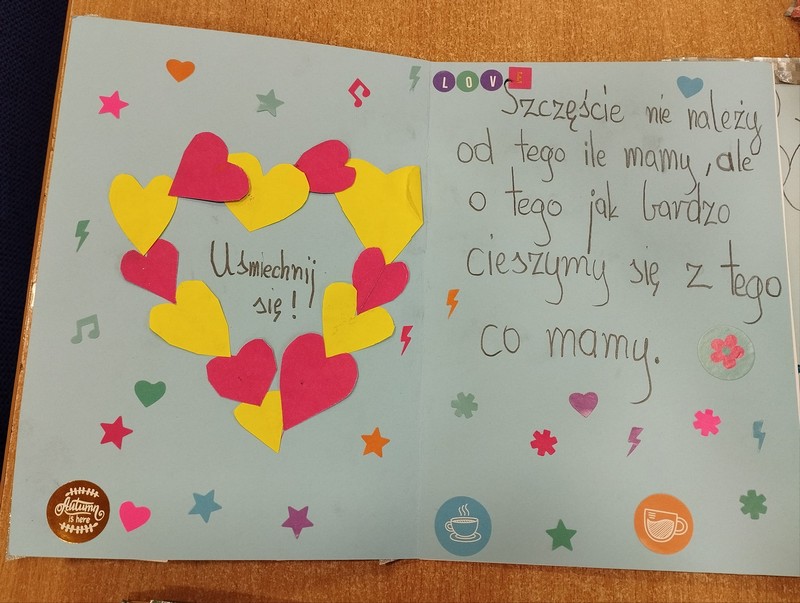 Uśmiechnij
się!
Autumn
is here
LOVE
Szczęście nie należy
od tego ile mamy, ale
o tego jak bardzo
cieszymy się z tego
co mamy.